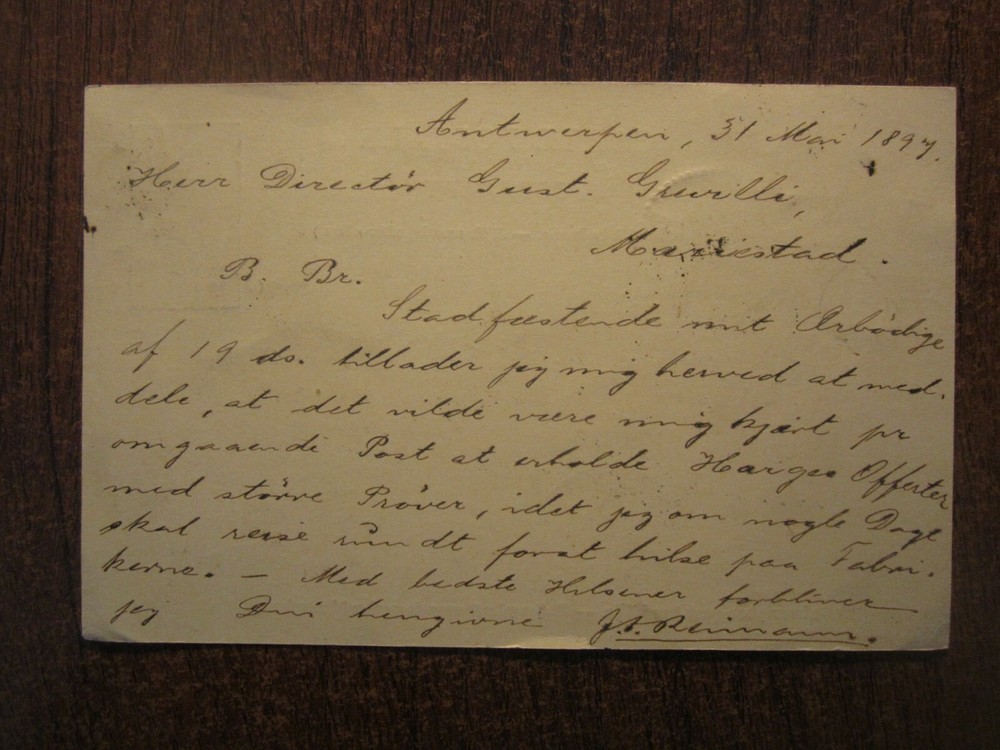 Antwerpen, 31 Mai 1897.
Herr Directör Gust.
Mariestad.
B. Br.
Stadfæstende mit Ærbödige
af 19 ds. tillader jeg mig herved at med-
dele, at det vilde være mig kjært pr
omgaaende Post at erholde Offerter
med större Pröver, idet jeg om nogle Dage
skal reise rundt for at hilse paa Fabri-
kerne. — Med bedste Hilsener forbliver
jeg hengivne J. Reimann.